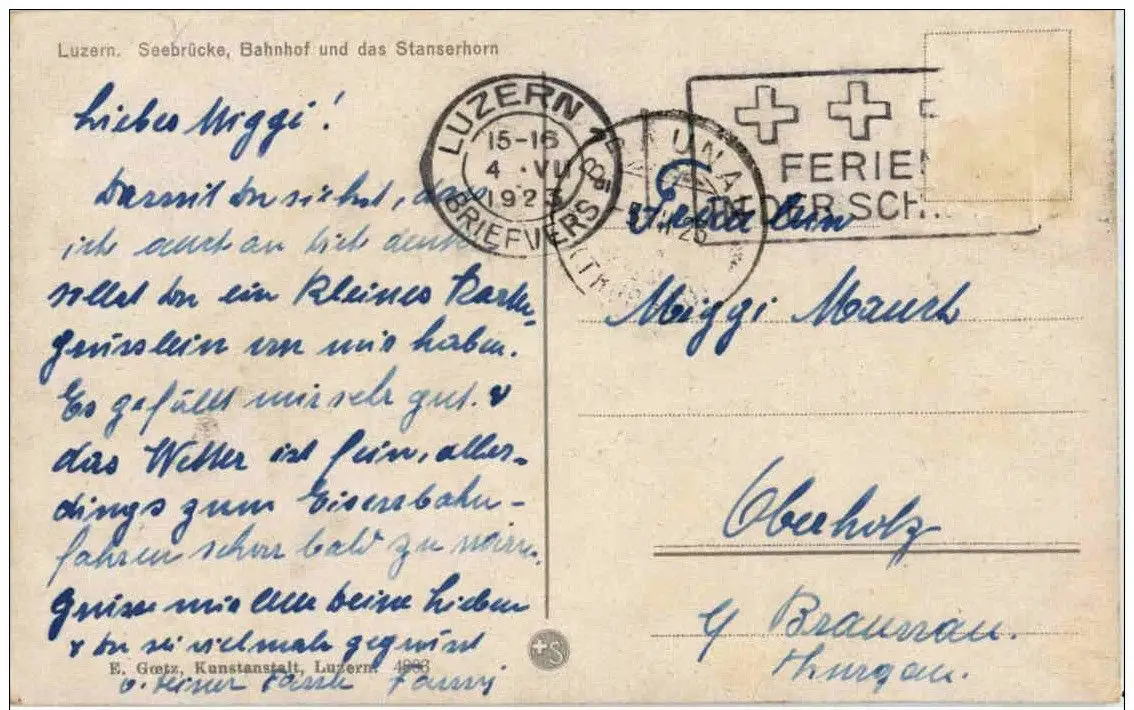 Luzern. Seebrücke, Bahnhof und das Stanserhorn
Liebes Miggi!
Damit du siehst, dass
ich auch an dich denke
sollst du ein kleines Karten-
grüsslein von mir haben.
Es gefällt mir sehr gut. &
das Wetter ist fein, aller-
dings zum Eisenbahn-
fahren schon bald zu warm.
Grüsse mir alle deine Lieben
& du sei vielmals gegrüsst
v. deiner Fanny
E. Goetz, Kunstanstalt, Luzern. 4983
LUZERN 1
15-16
4 VII
1923
BRIEFVERS
BRAUNAU
FERIEN
IN DER SCH
Fräulein
Miggi Mauch
Oberholz
b/ Braunau.
Thurgau.
+S